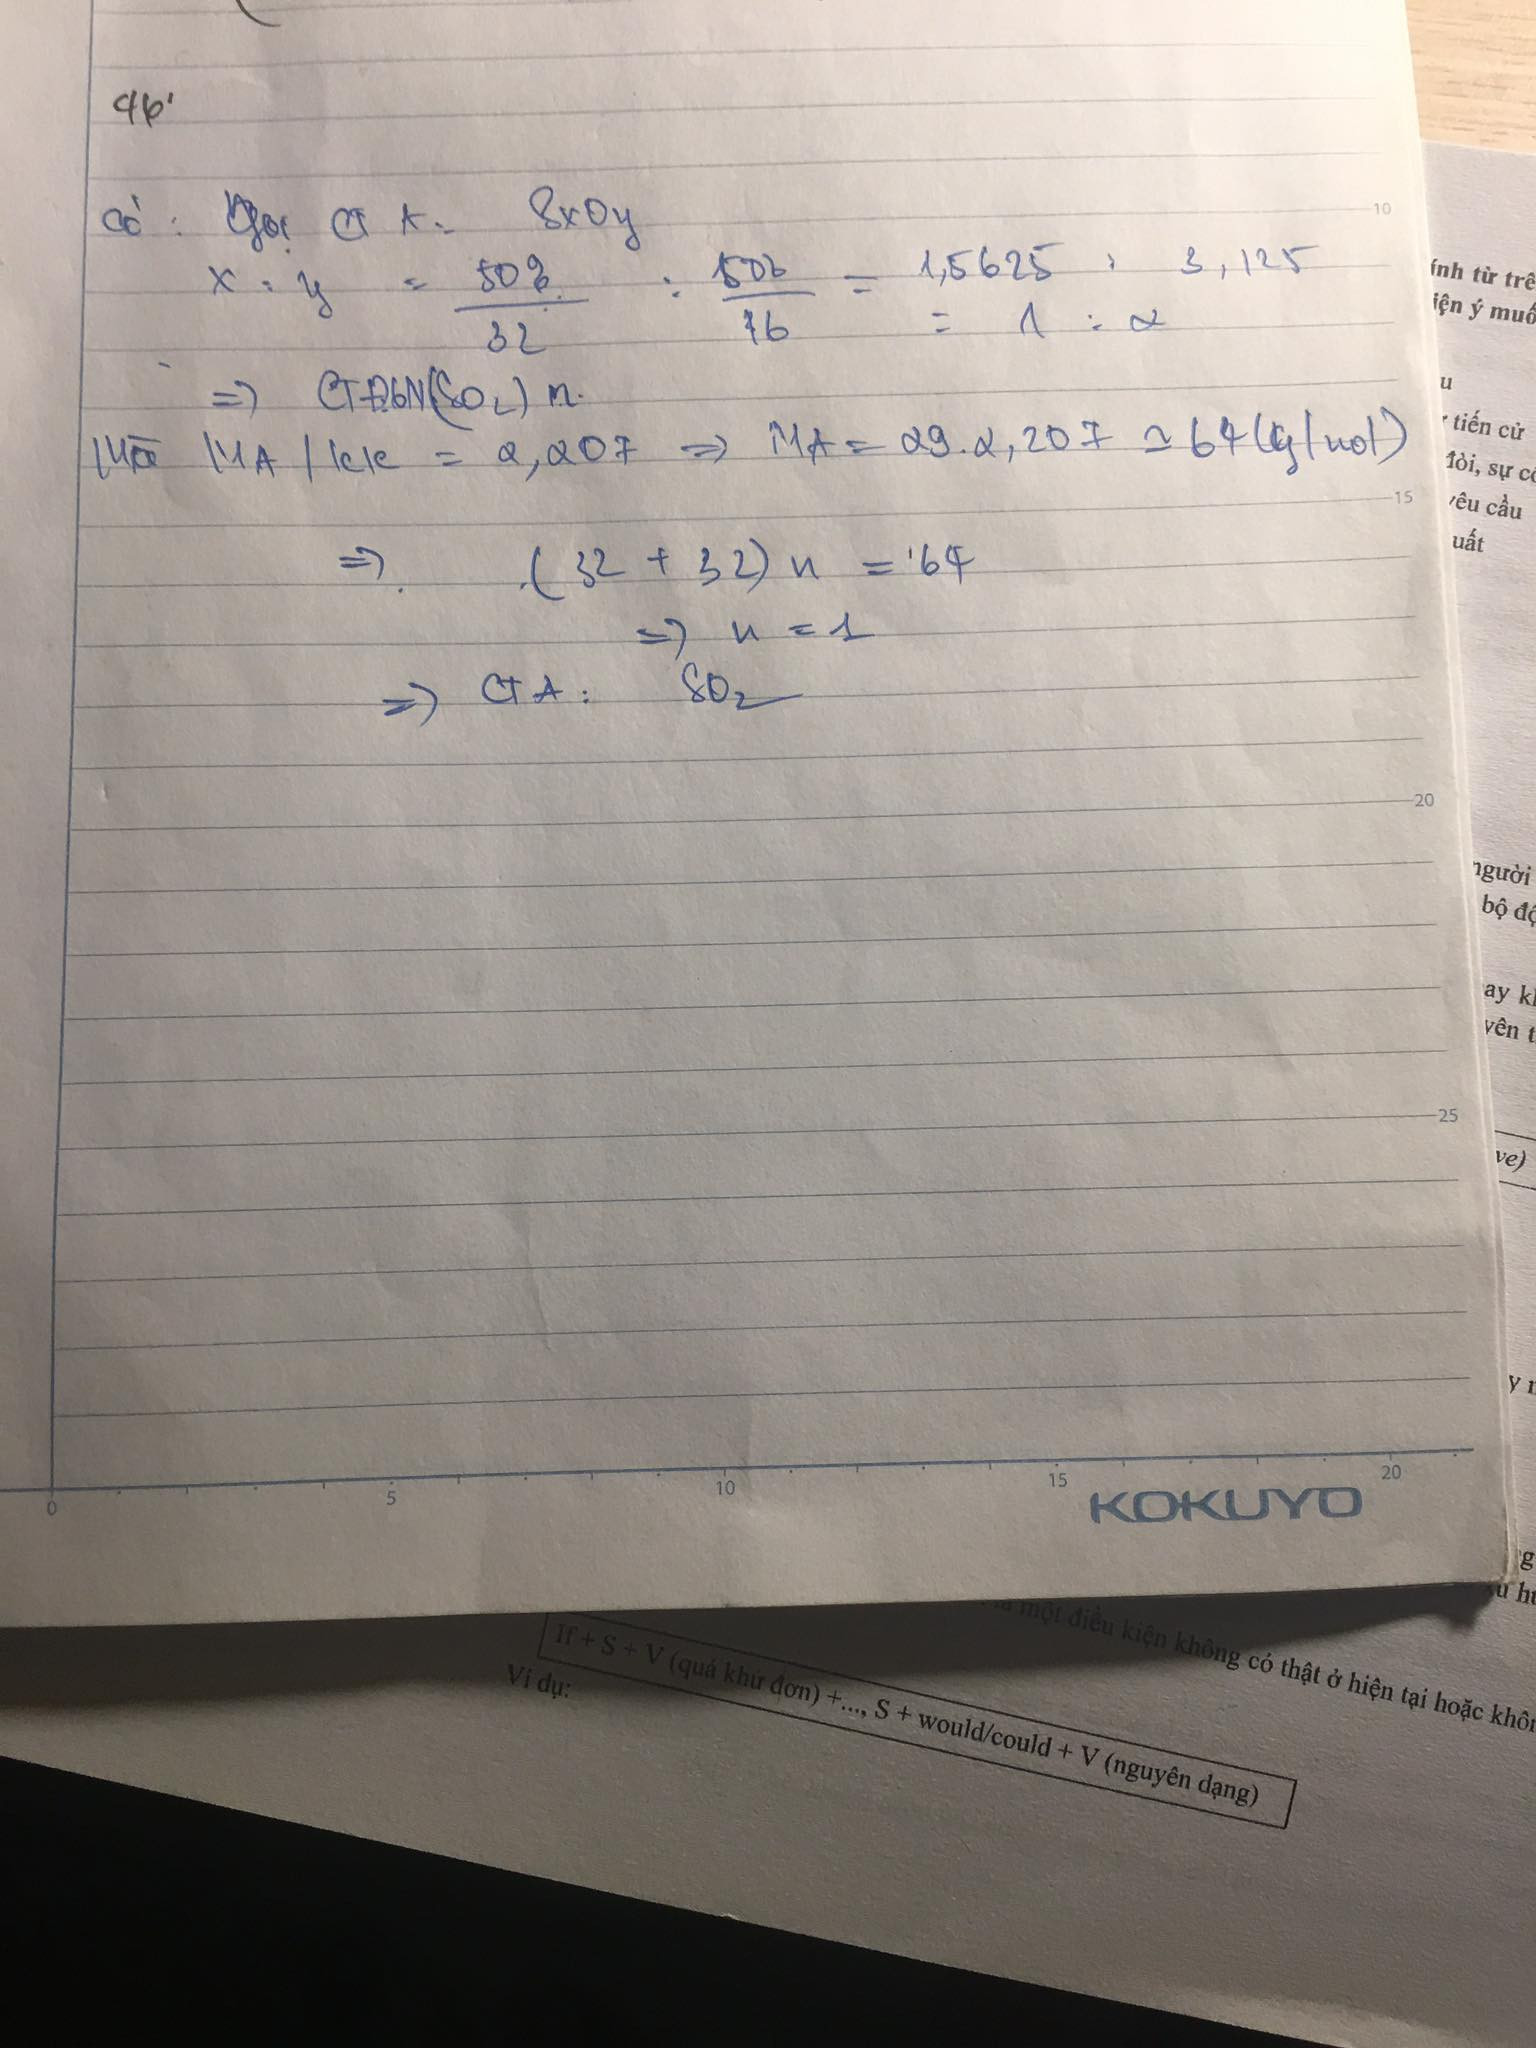 46'
10
Có : Gọi CT A: SxOy
x : y = 50% / 32 : 50% / 16 = 1,5625 : 3,125
= 1 : 2
=> CTĐGN(SO2) n.
Mà MA / KK = 2,207 => MA = 29.2,207 ≃ 64 (g/mol)
15
=> (32 + 32) n = 64
=> n = 1
=> CT A : SO2
20
25
0 5 10 15 20
KOKUYO
ính từ trê
iện ý muố
u
tiến cử
đòi, sự cô
yêu cầu
uất
người
bộ độ
ay kh
yên t
ve)
y n
g
là một điều kiện không có thật ở hiện tại hoặc khôn
If + S + V (quá khứ đơn) +..., S + would/could + V (nguyên dạng)
Ví dụ: